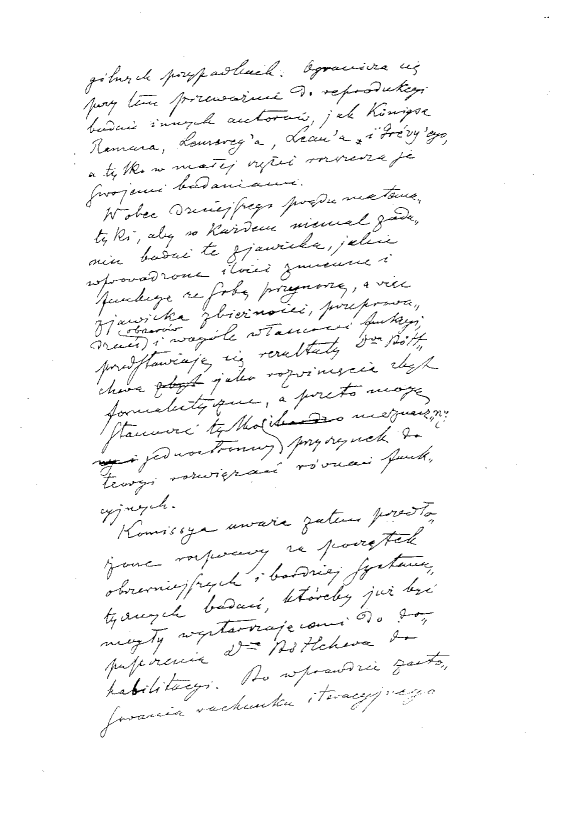 gólnych przypadkach. Ogranicza się
przy tem przeważnie do reprodukcyi
badań innych autorów, jak Königsa
Ramara, Lemeray'a, Leau'a i Grévy'ego,
a tylko w małej części rozszerza je
swojemi badaniami.
Wobec dzisiejszego prądu matema-
tyki, aby w każdem niemal zada-
niu badać te zjawiska, jakie
wprowadzone ilości zmienne i
funkcye ze sobą przynoszą, a więc
zjawiska zbieżności, przeprowa-
dzać obszarów i wogóle własności funkcyi,
przedstawiają się rezultaty Dra Bött-
chera zbyt jako rozwinięcia zbyt
formalistyczne, a przeto mogą
stanowić tylko bardzo nieznaczny
i jednostronny przyczynek do
teoryi rozwiązań równań funk-
cyjnych.
Komisya uważa zatem przedło-
żone rozprawy za początek
obszerniejszych i bardziej systema-
tycznych badań, któreby już być
mogły wystarczającemi do do-
puszczenia Dra Böttchera do
habilitacyi. Bo wprawdzie zasto-
sowania rachunku iteracyjnego